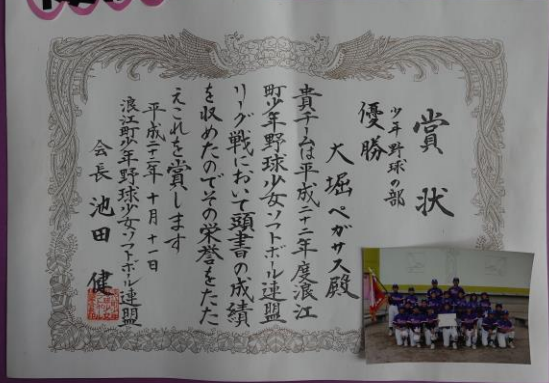 賞状
少年野球の部
優勝
大堀ペガサス殿
貴チームは平成二十二年度浪江
町少年野球少女ソフトボール連盟
リーグ戦において頭書の成績
を収めたのでその栄誉をたた
えこれを賞します
平成二十二年十月十一日
浪江町少年野球少女ソフトボール連盟
会長 池田 健